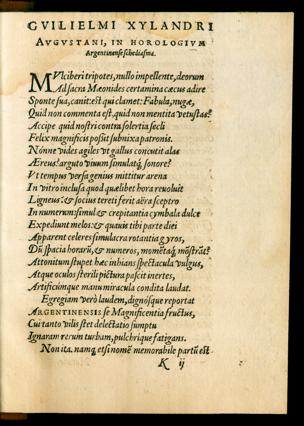 GVILIELMI XYLANDRI
AVGVSTANI, IN HOROLOGIVM
Argentinense schediasma.
MVlciberi tripotes, nullo impellente, deorum
Ad sacra Mæonides certamina cæcus adire
Sponte sua, canit: est qui clamet: Fabula, nugæ,
Quid non commenta est, quid non mentita vetustas?
Accipe quid nostri contra solertia secli
Felix magnificis possit subnixa patronis.
Nónne vides aliges vt gallus concutit alas
Æreus? arguto viuum simulatq́; sonore?
Vt tempus versa genius mittitur arena
In vitro inclusa quod quælibet hora reuoluit
Ligneus: & socius tereti ferit aëra sceptro
In numerum: simul & crepitantia cymbala dulce
Expediunt melos: & quauis tibi parte diei
Apparent celeres simulacra rotantia gyros,
Dū spacia horarū, & numeros, mometaq́; mōstrāt?
Attonitum stupet hæc inhians spectacula vulgus,
Atque oculos sterili pictura pascit inertes,
Artificúmque manu miracula condita laudat.
Egregiam verò laudem, dignósque reportat
ARGENTINENSIS se Magnificentia fructus,
Cui tanto vilis stet delectatio sumptu
Ignaram rerum turbam, pulchrique fatigans.
Non ita. namq́; etsi nomē memorabile partū est
K ij